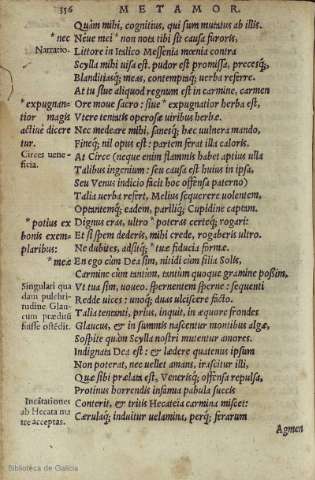 356 METAMOR.
Quàm mihi, cognitius, qui sum mutatus ab illis.
* nec Néue mei * non nota tibi sit causa furoris,
Narratio. Littore in Italico Messenia mœnia contra
Scylla mihi uisa est. pudor est promissa, precesq́;
Blanditiasq́; meas, contemptaq́; uerba referre.
At tu siue aliquod regnum est in carmine, carmen
* expugnan Ore moue sacro: siue * expugnatior herba est,
tior magis Vtere tentatis operosæ uiribus herbæ.
actiuè dicere Nec medeare mihi, sanesq́; hæc uulnera mando,
tur. Fineq́; nil opus est: partem ferat illa caloris.
Circes uene At Circe (neque enim flammis habet aptius ulla
ficia. Talibus ingenium: seu causa est huius in ipsa,
Seu Venus indicio facit hoc offensa paterno)
Talia uerba refert, Melius sequerere uolentem,
Optantemq́; eadem, parilíq; Cupidine captam.
* potius ex Dignus eras, ultro * poteras certeq́; rogari:
bonis exem Et si spem dederis, mihi crede, rogaberis ultro.
plaribus: Ne dubites, adsitq́; * tuæ fiducia formæ.
* meæ En ego cùm Dea sim, nitidi cùm filia Solis,
Carmine cùm tantùm, tantùm quoque gramine possim,
Singulari quo Vt tua sim, uoueo. spernentem sperne: sequenti
dam pulchri- Redde uices: unoq́; duas ulciscere facto.
tudine Glau Talia tentanti, prius, inquit, in æquore frondes
cum præditũ Glaucus, & in summis nascentur montibus algæ,
fuisse ostẽdit. Sospite quàm Scylla nostri mutentur amores.
Indignata Dea est: & lædere quatenus ipsum
Non poterat, nec uellet amans, irascitur illi,
Quæ sibi prælata est, Venerisq́; offensa repulsa,
Protinus horrendis infamia pabula succis
Incãtationes Conterit, & tritis Hecateia carmina miscet:
ab Hecata ma Cærulaq́; induitur uelamina, perq́; ferarum
tre acceptas.
Agmen
Biblioteca de Galicia